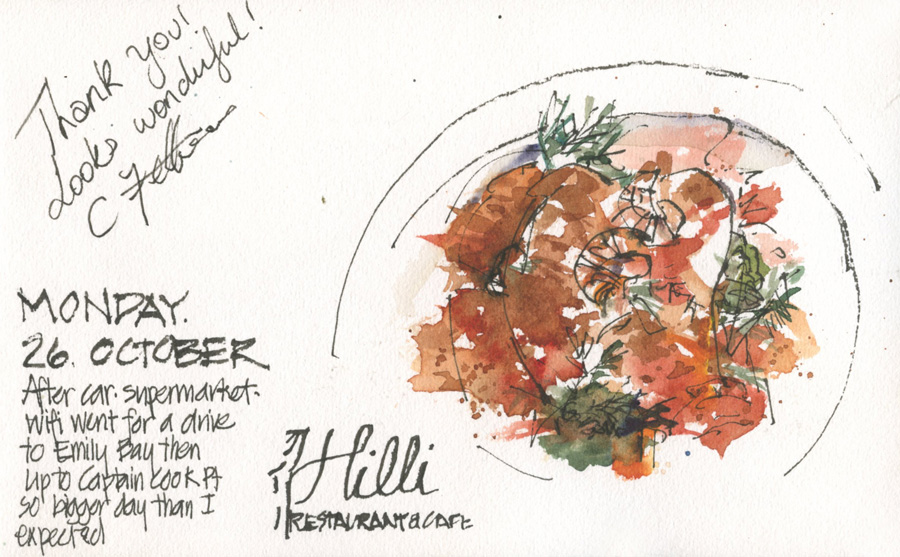 Thank you!
Looks wonderful!
C
MONDAY.
26. OCTOBER
After car. supermarket.
wifi went for a drive
to Emily Bay then
up to Captain Cook Pt
so bigger day than I
expected
Hilli
RESTAURANT & CAFE